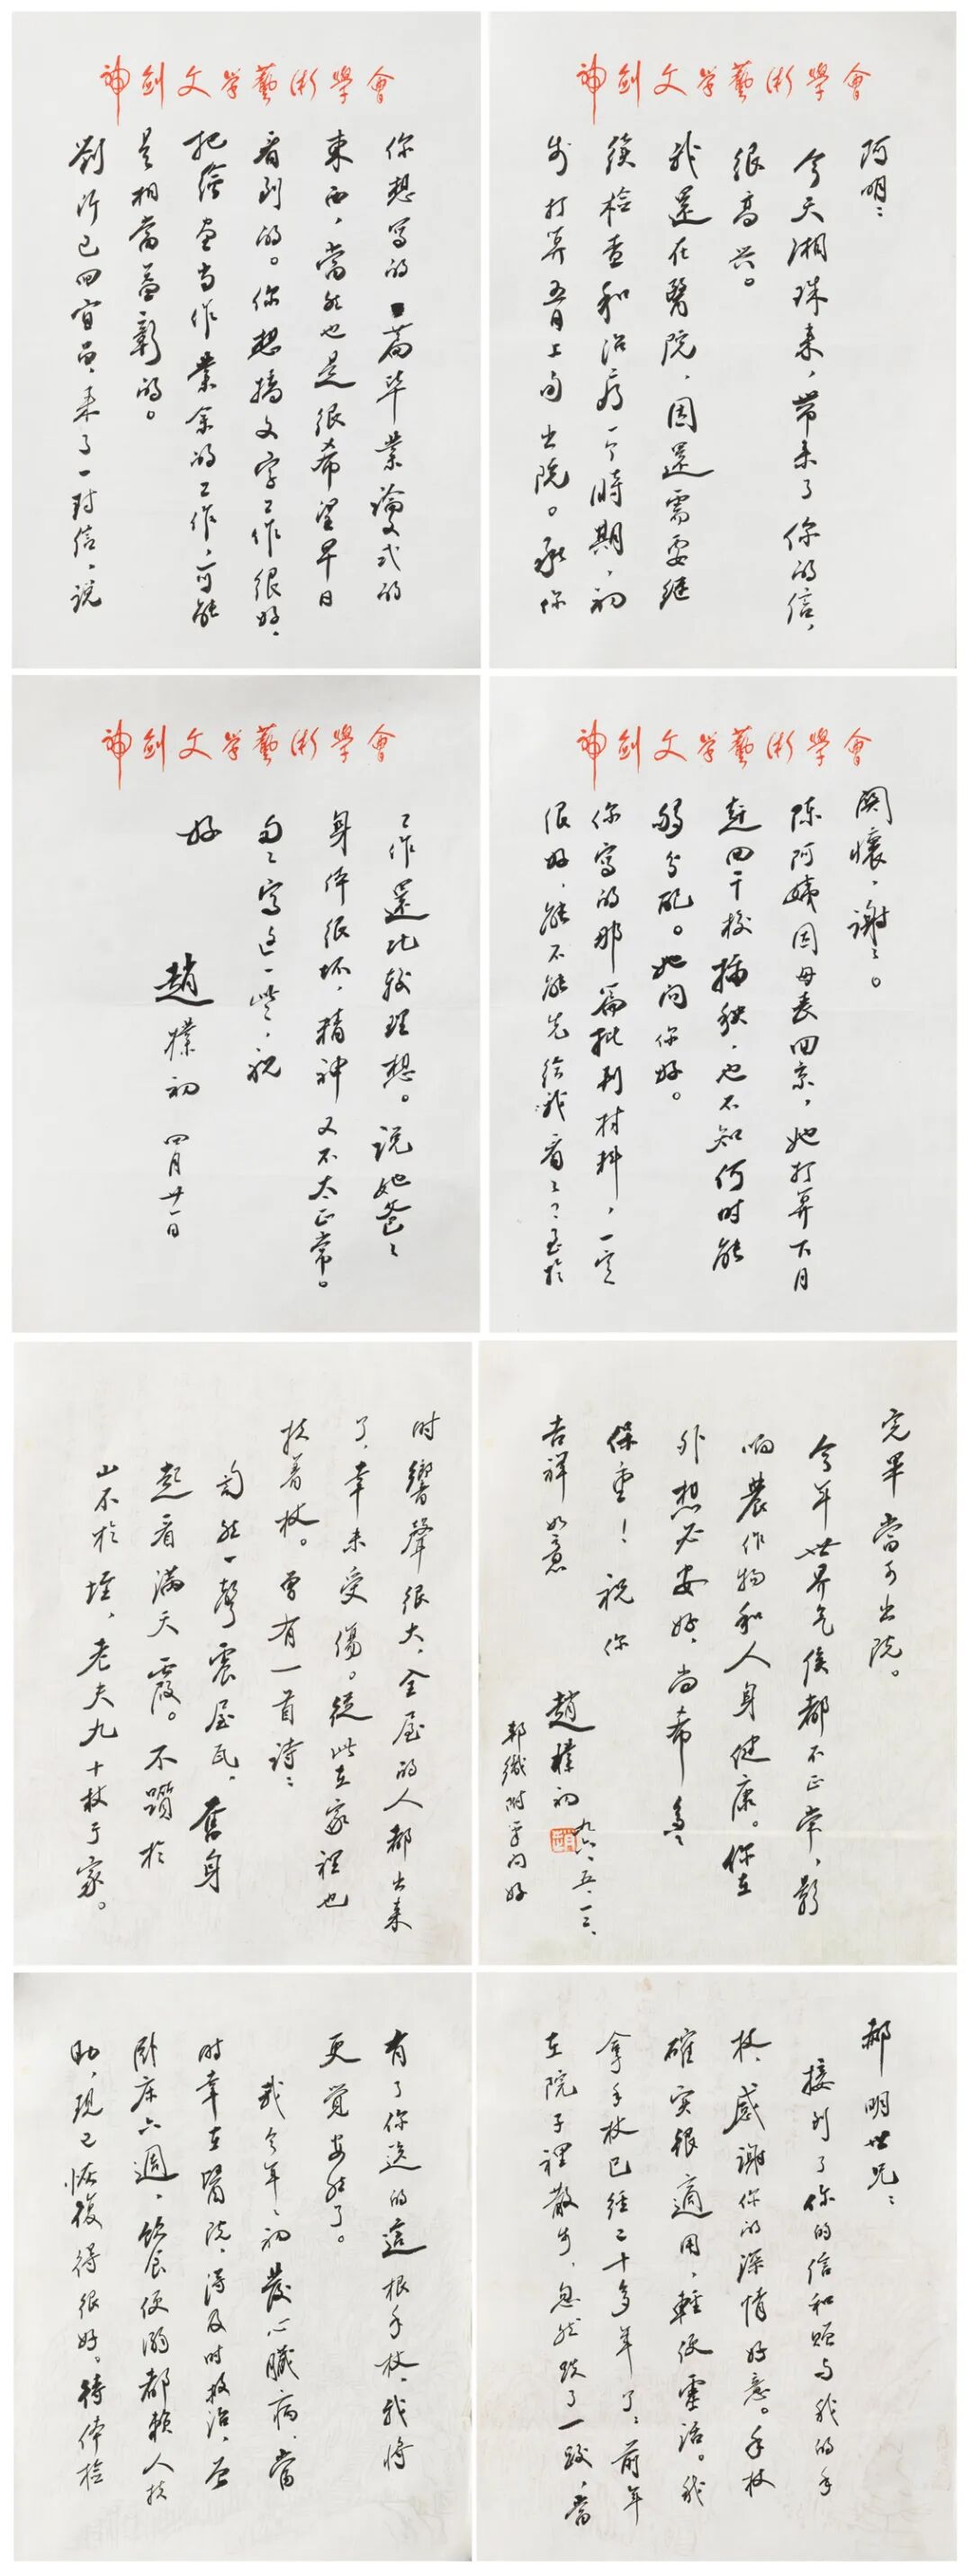 神剑文学藝術學會
阿明：
今天湘珠来，带来了你的信，
很高兴。
我還在醫院，因還需要继
续检查和治疗一个時期，初
步打算五月上旬出院。承你
神剑文学藝術學會
関懷，謝謝。
陈阿姨因母丧回京，她打算下月
赶回干校插秧，也不知何时能
够分配。她问你好。
你写的那篇批判材料，一定
很好，能不能先给我看看？至於
神剑文学藝術學會
你想写的一篇毕業論文式的
東西，當然也是很希望早日
看到的。你想搞文字工作很好，
把绘画当作業余的工作，可能
是相當益彰的。
劉沂已回宜昌，来了一封信，说
神剑文学藝術學會
工作還比较理想。说她爸爸
身体很坏，精神又不太正常。
匆匆写这一些，祝
好
趙樸初 四月廿一日
郝明世兄：
接到了你的信和赠与我的手
杖，感謝你的深情好意。手杖
確实很適用，輕便靈活。我
拿手杖已经二十多年了，前年
在院子裡散步，忽然跌了一跤，當
时響聲很大，全屋的人都出来
了，幸未受傷。從此在家裡也
扶着杖。曾有一首詩：
訇然一聲震屋瓦，奮身
起看滿天霞。不躓於
山不於垤，老夫九十杖于家。
有了你送的這根手杖，我將
更覚安然了。
我今年初發心臟病，當
时幸在醫院，得及时救治，在
卧床六週，飲食便溺都赖人扶
助，現已恢復得很好。待体检
完畢當可出院。
今年世界气候都不正常，影
响農作物和人身健康。你在
外想必安好，尚希多多
保重！祝你
吉祥如意
趙樸初 九六、五、一三、
邦織附筆问好